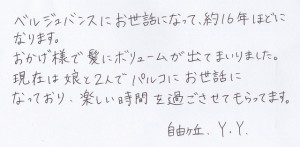 ベルジュバンスにお世話になって、約16年ほどに
なります。
おかげ様で髪にボリュームが出てまいりました。
現在は娘と2人でパルコにお世話に
なっており、楽しい時間を過ごさせてもらってます。
自由ヶ丘. Y.Y.